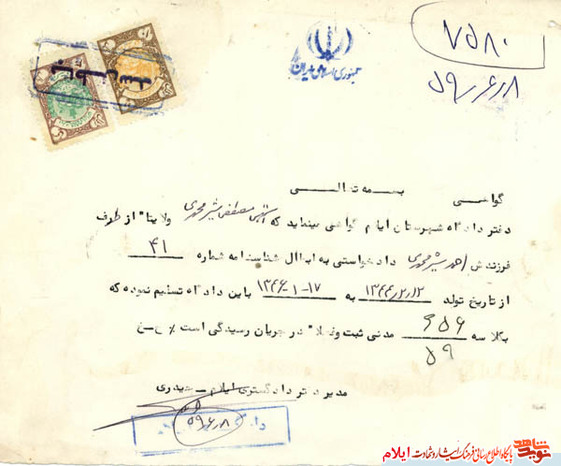 ۷۵۸۰
۵۹/۶/۸
جمهوری اسلامی ایران
بسمه تعالی
گواهی
دفتر دادگاه شهرستان ایلام گواهی مینماید که آقای مصطفی شیرمحمدی ولایتا" از طرف
فرزندش احمد شیرمحمدی دادخواستی به ابطال شناسنامه شماره ۴۱
از تاریخ تولد ۱۳۴۴/۲/۲ به ۱۷-۱-۱۳۴۶ باین دادگاه تسلیم نموده که
بکلاسه ۶۵۶ مدنی ثبت و فعلا" در جریان رسیدگی است
۵۹
مدیر دفتر دادگستری ایلام - حیدری
۵۹/۶/۸
نوید شاهد
پایگاه اطلاع رسانی فرهنگ ایثار و شهادت ایلام